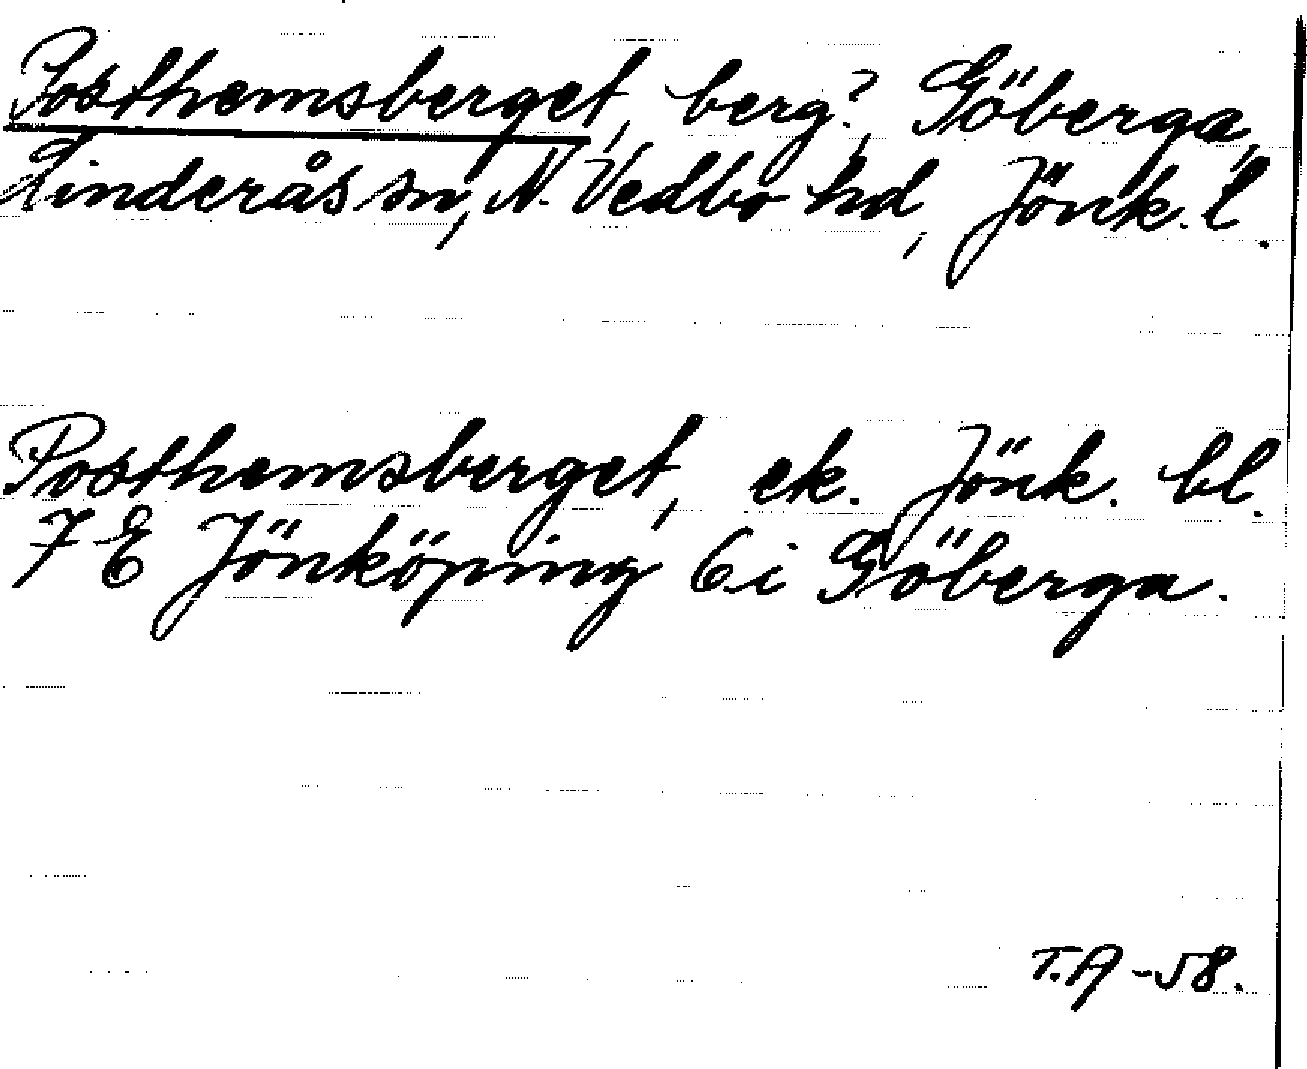 Posthemsberget, berg?, Göberga,
Linderås sn, N. Vedbo hd, Jönk. l.
Posthemsberget, ek. Jönk. bl.
7 E Jönköping 6 i Göberga.
T.A -58.